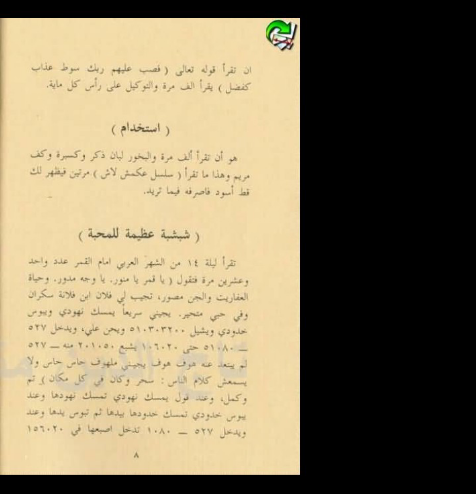 ان تقرأ قوله تعالى ( فصب عليهم ربك سوط عذاب
كفضل ) يقرأ الف مرة والتوكيل على رأس كل ماية.
( استخدام )
هو أن تقرأ ألف مرة والبخور لبان ذكر وكسبرة وكف
مريم وهذا ما تقرأ ( سلسل عكمش لاش ) مرتين فيظهر لك
قط أسود فاصرفه فيما تريد.
( شبشبة عظيمة للمحبة )
تقرأ ليلة ١٤ من الشهر العربي امام القمر عدد واحد
وعشرين مرة فتقول ( يا قمر يا منور. يا وجه مدور. وحياة
العفاريت والجن مصور، تجيب لي فلان ابن فلانة سكران
وفي حبي متحير. يجيني سريعاً يمسك نهودي ويبوس
خدودي ويشيل ٥١٠٣٠٣٢٠٠ ويحن علي، ويدخل ٥٢٧
— ٥١٠٨٠ حتى ١٠٦٠٢٠ يشبع ٢٠١٠٥٠ منه — ٥٢٧
لم يبتعد عنه هوف هوف يجيني ملهوف حاس حاس ولا
يسمعش كلام الناس : سحر وكان في كل مكان ) تم
وكمل، وعند قول يمسك نهودي تمسك نهودها وعند
يبوس خدودي تمسك خدودها بيدها ثم تبوس يدها وعند
ويدخل ٥٢٧ — ١٠٨٠ تدخل اصبعها في ١٥٦٠٢٠
٨